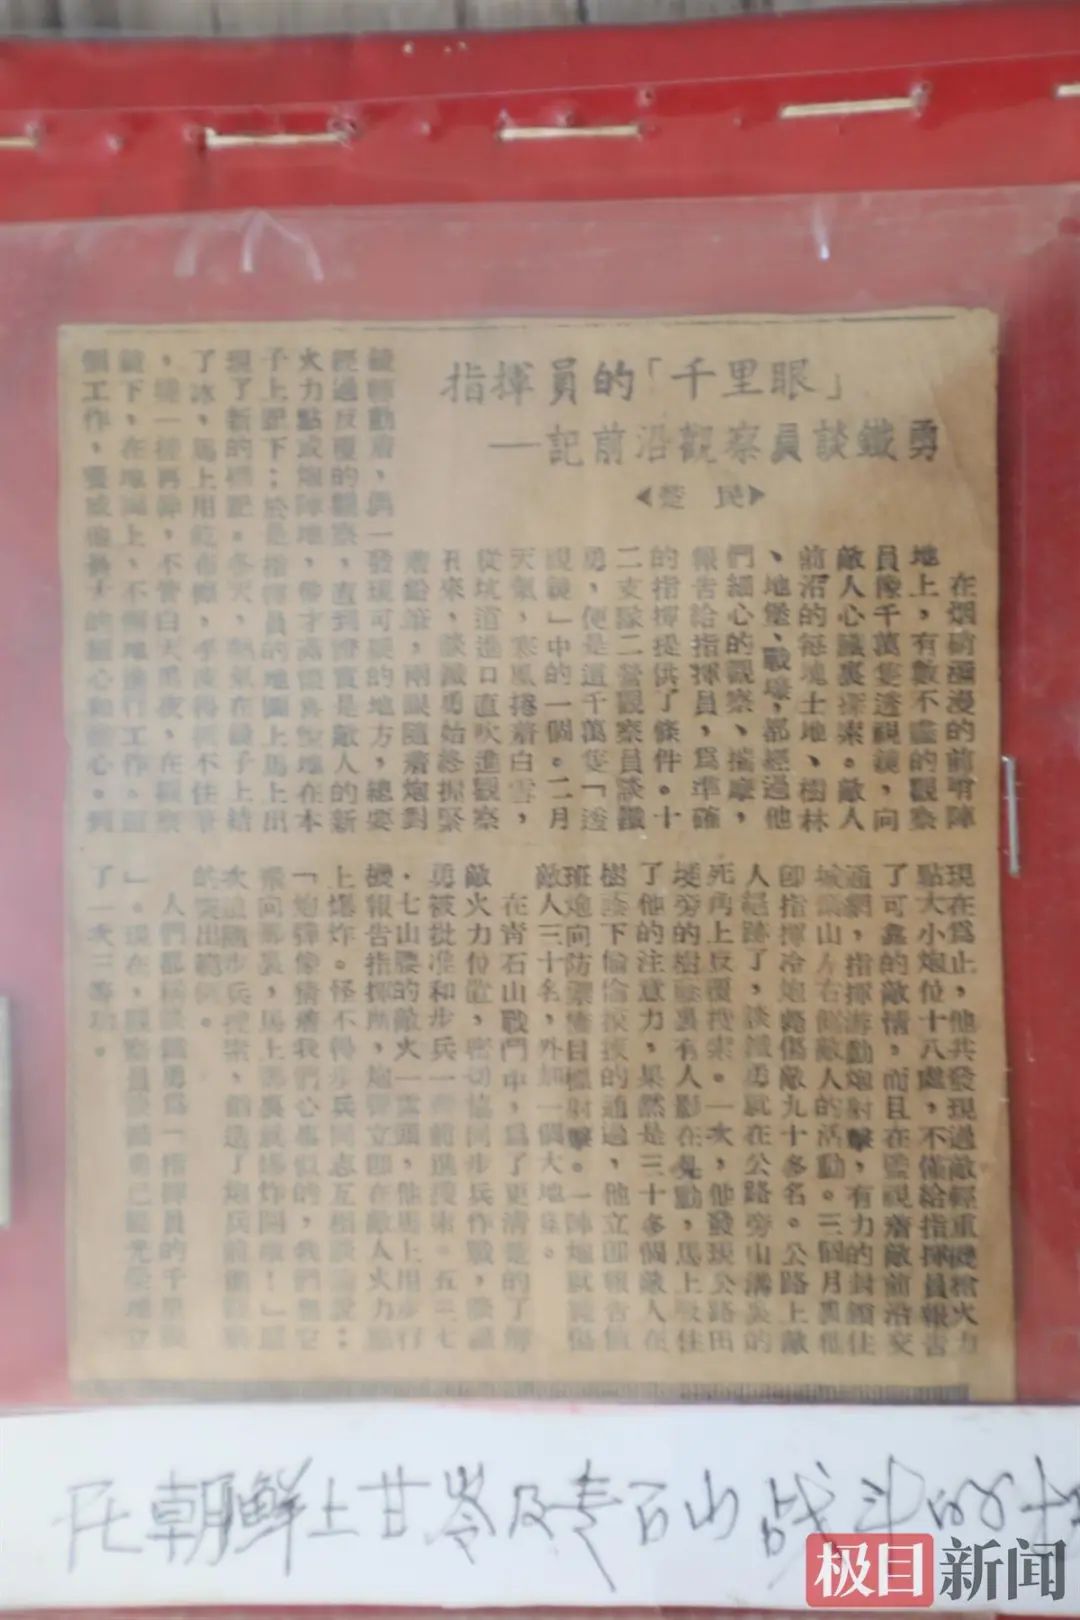 指揮員的「千里眼」
—記前沿觀察員談鐵勇
楚民
在烟硝瀰漫的前哨陣
地上，有數不盡的觀察
員像千萬隻透視鏡，向
敵人心臟裏探索。敵人
前沿的每塊土地、樹林
、地堡、戰壕，都經過他
們細心的觀察、揣摩，
報告給指揮員，爲準確
的指揮提供了條件。十
二支隊二營觀察員談鐵
勇，便是這千萬隻「透
視鏡」中的一個。二月
天氣，寒風捲着白雪，
從坑道進口直吹進觀察
孔來，談鐵勇始終握緊
着鉛筆，兩眼隨着炮對
鏡轉動着，偶一發現可疑的地方，總要
經過反覆的觀察，直到證實是敵人的新
火力點或炮陣地，地在本
子上記下；於是指揮員的地圖上馬上出
現了新的標記。冬天，熱氣在鏡子上結
了冰，馬上用乾布擦，手凍得握不住筆
，不管白天黑夜，在觀察
鏡下，在地圖上，不倦地進行工作。這
個工作，細心和耐心。到
現在爲止，他共發現過敵輕重機槍火力
點大小炮位十八處，不僅給指揮員報告
了可靠的敵情，而且在監視着敵前沿交
通網，指揮游動炮射擊，有力的封鎖住
山左右側敵人的活動。三個月裏他
即指揮冷炮斃傷敵九十多名。公路上敵
人絕跡了，談鐵勇就在公路旁山溝裏的
死角上反覆搜索。一次，他發現公路田
埂旁的樹蔭裏有人影在晃動，馬上吸住
了他的注意力，果然是三十多個敵人在
樹蔭下偷偷摸摸的通過，他立即報告值
班炮向目標射擊。一陣地就斃傷
敵人三十名，外加一個大地堡。
在青石山戰鬥中，爲了更清楚的了解
敵火力位置，密切協同步兵作戰，談鐵
勇被批准和步兵一齊前進搜索。五三七
·七山腰的敵火一露頭，他馬上用步行
機報告指揮所，炮彈立即在敵人火力點
上爆炸。怪不得步兵同志互相談論說：
「炮彈像猜着我們心事似的，我們要它
飛向那裏，馬上那裏就爆炸開啦！」這
次他隨步兵搜索，創造了炮兵前沿觀察
的突出範例。
人們都稱談鐵勇爲「指揮員的千里眼
」。現在，觀察員談鐵勇已經光榮地立
了一次三等功。
在朝鲜上甘岺及青石山战斗的
极目新闻